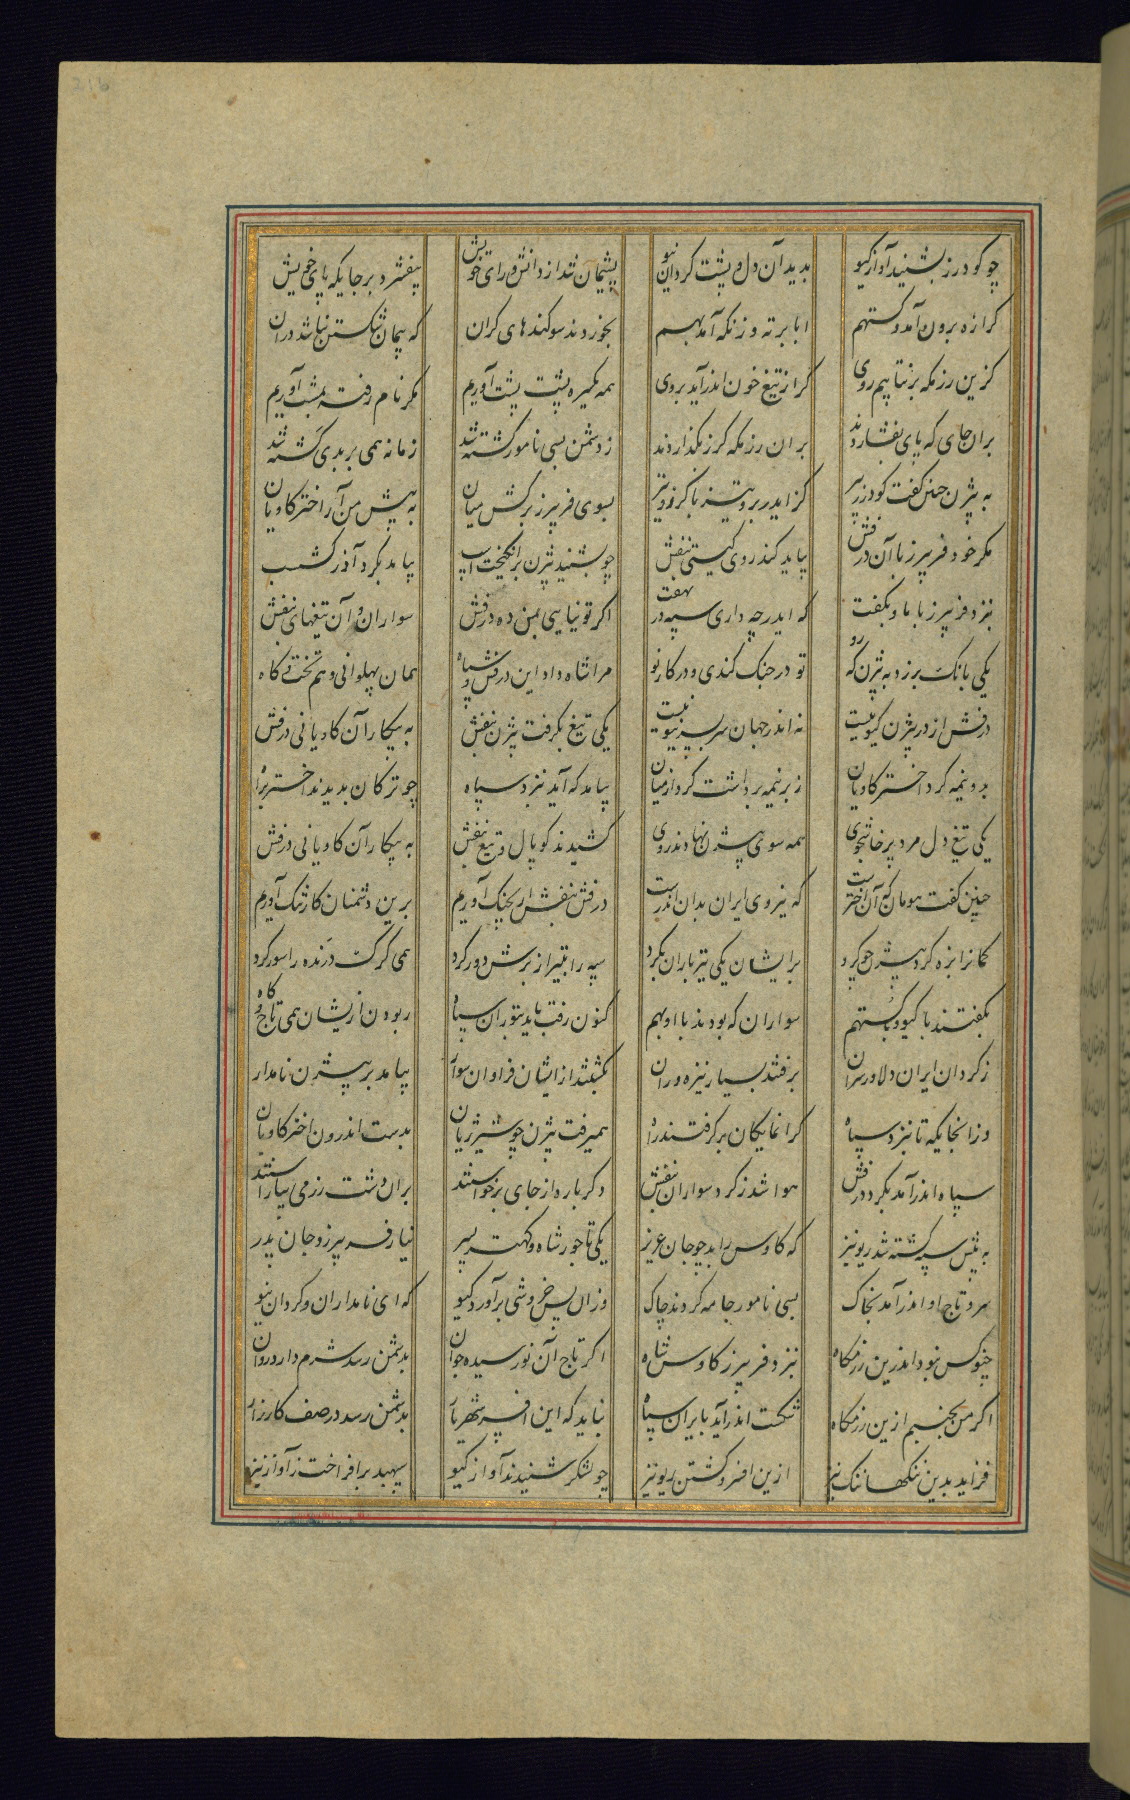 چو گودرز بشنید آواز گیو بدید آن دل و پشت گردان نیو پشیمان شد از دانش و رای خویش بیفشرد بر جایگه پای خویش
گرازه برون آمد و گستهم ابا برته و زنگه آمد بهم بخوردند سوکندهای گران که پیمان شکستن نباشد در آن
کزین رزمگه برنتابیم روی گر از تیغ خون اندر آید بروی همه یکسره پشت پشت آوریم مگر نام رفته بمشت آوریم
بران جای که پای بفشاردند بران رزمگه گرز بگذاردند ز دشمن بسی نامور کشته شد زمانه همی بر بدی گشته شد
به بیژن چنین گفت گودرز پیر کز ایدر برو تیز با گرز و تیر بسوی فریبرز برکش میان به پیش من آر اختر کاویان
مگر خود فریبرز با آن درفش بیاید کند روی گیتی بنفش چو بشنید بیژن برانگیخت اسپ بیامد بکردآذرگشسب
بنزد فریبرز بابا و بگفت که ایدر چه داری سپه در نهفت اگر تو نیایی بمن ده درفش سواران و آن تیغهای بنفش
یکی بانگ برزد به بیژن که رو تو در جنگ کندی و در کار نو مرا شاه داد این درفش و سپاه همان پهلوانی و هم تخت و کاه
درفش از در بیژن گیو نیست نه اندر جهان سربسر نیو نیست یکی تیغ بگرفت بیژن بنفش به پیکار آن کاویانی درفش
بدو نیمه کرد اختر کاویان ز بر نیمه برداشت گرد از میان بیامد که آید بنزد سپاه چو ترکان بدیدند اختر براه
یکی تیغ دل مرد پرخاشجوی همه سوی بیژن نهادند روی کشیدند کوپال و تیغ بنفش به پیکار آن کاویانی درفش
چنین گفت هومان که آن اخترست که نیروی ایران بدان اندرست درفش بنفش ار بچنگ آوریم برین دشمنان کار تنگ آوریم
کمانرا بزه کرد بیژن چو گرد بر ایشان یکی تیرباران بکرد سپه را بتیر از برش دور کرد همی گرگ درنده را سور کرد
بگفتند با گیو و با گستهم سواران که بودند با او بهم کنون رفت باید بتوران سپاه ربودن ازیشان همی تاج و گاه
ز گردان ایران دلاور سران برفتند بسیار نیزه‌وران بکشتند از ایشان فراوان سوار بیامد بر بیژن نامدار
وز آنجایگه تا بنزد سپاه گرانمایگان برگرفتند راه همیرفت بیژن چو شیر ژیان بدست اندرون اختر کاویان
سپاه اندر آمد بگرد درفش هوا شد ز گرد سواران بنفش دگرباره از جای برخواستند بران دشت رزمی بیاراستند
به پیش سپه کشته شد ریونیز که کاوس را بد چو جان عزیز یکی تاجور شاه و کهتر پسر نیاز فریبرز و جان پدر
سر و تاج او اندر آمد بخاک بسی نامور جامه کردند چاک وزان پس خروشی برآورد گیو که ای نامداران و گردان نیو
چنو کس نبود اندرین رزمگاه بنزد فریبرز کاوس شاه اگر تاج آن نورسیده جوان بدشمن رسد شرم دارد روان
اگر من بجنبم ازین رزمگاه شکست اندر آید بایران سپاه نباید که این افسر شهریار بدشمن رسد در صف کارزار
فزاید بدین ننگها ننگ نیز ازین افسر و کشتن ریونیز چو لشکر شنیدند آواز گیو سپهبد برافراخت ز آواز نیز